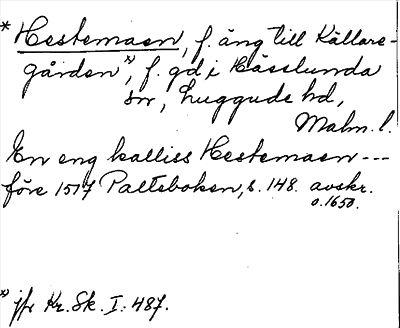 * Hestemaen, f. äng till Källare-
gården *), f. gd i Hässlunda
sn, Luggude hd,
Malm. l.
En eng kalliss Hestemaen ---
före 1517 Palteboken, s. 148. avskr.
o. 1650.
*) jfr Kr. Sk. I: 487.